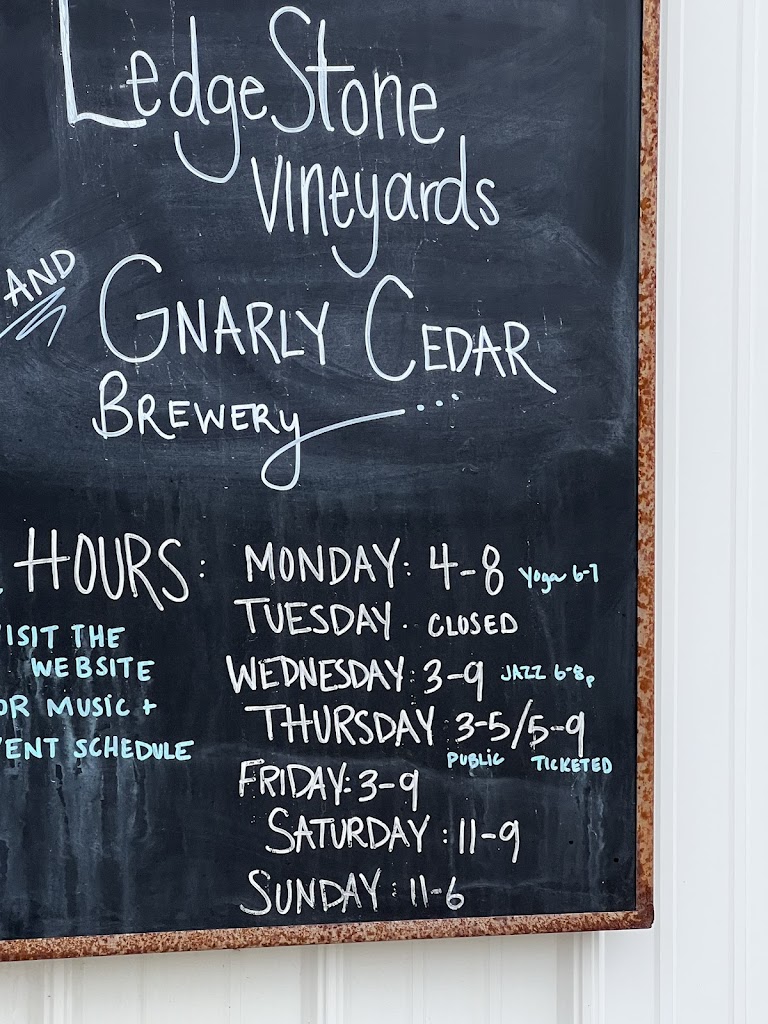 LedgeStone
Vineyards
AND
GNARLY CEDAR
BREWERY...
HOURS:
MONDAY: 4-8 Yoga 6-7
TUESDAY. CLOSED
ISIT THE
WEBSITE
OR MUSIC +
ENT SCHEDULE
WEDNESDAY: 3-9 JAZZ 6-8p
THURSDAY 3-5/5-9
PUBLIC TICKETED
FRIDAY: 3-9
SATURDAY: 11-9
SUNDAY: 11-6